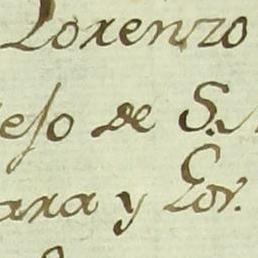 Lorenzo
eso de S.
ara y Gov.